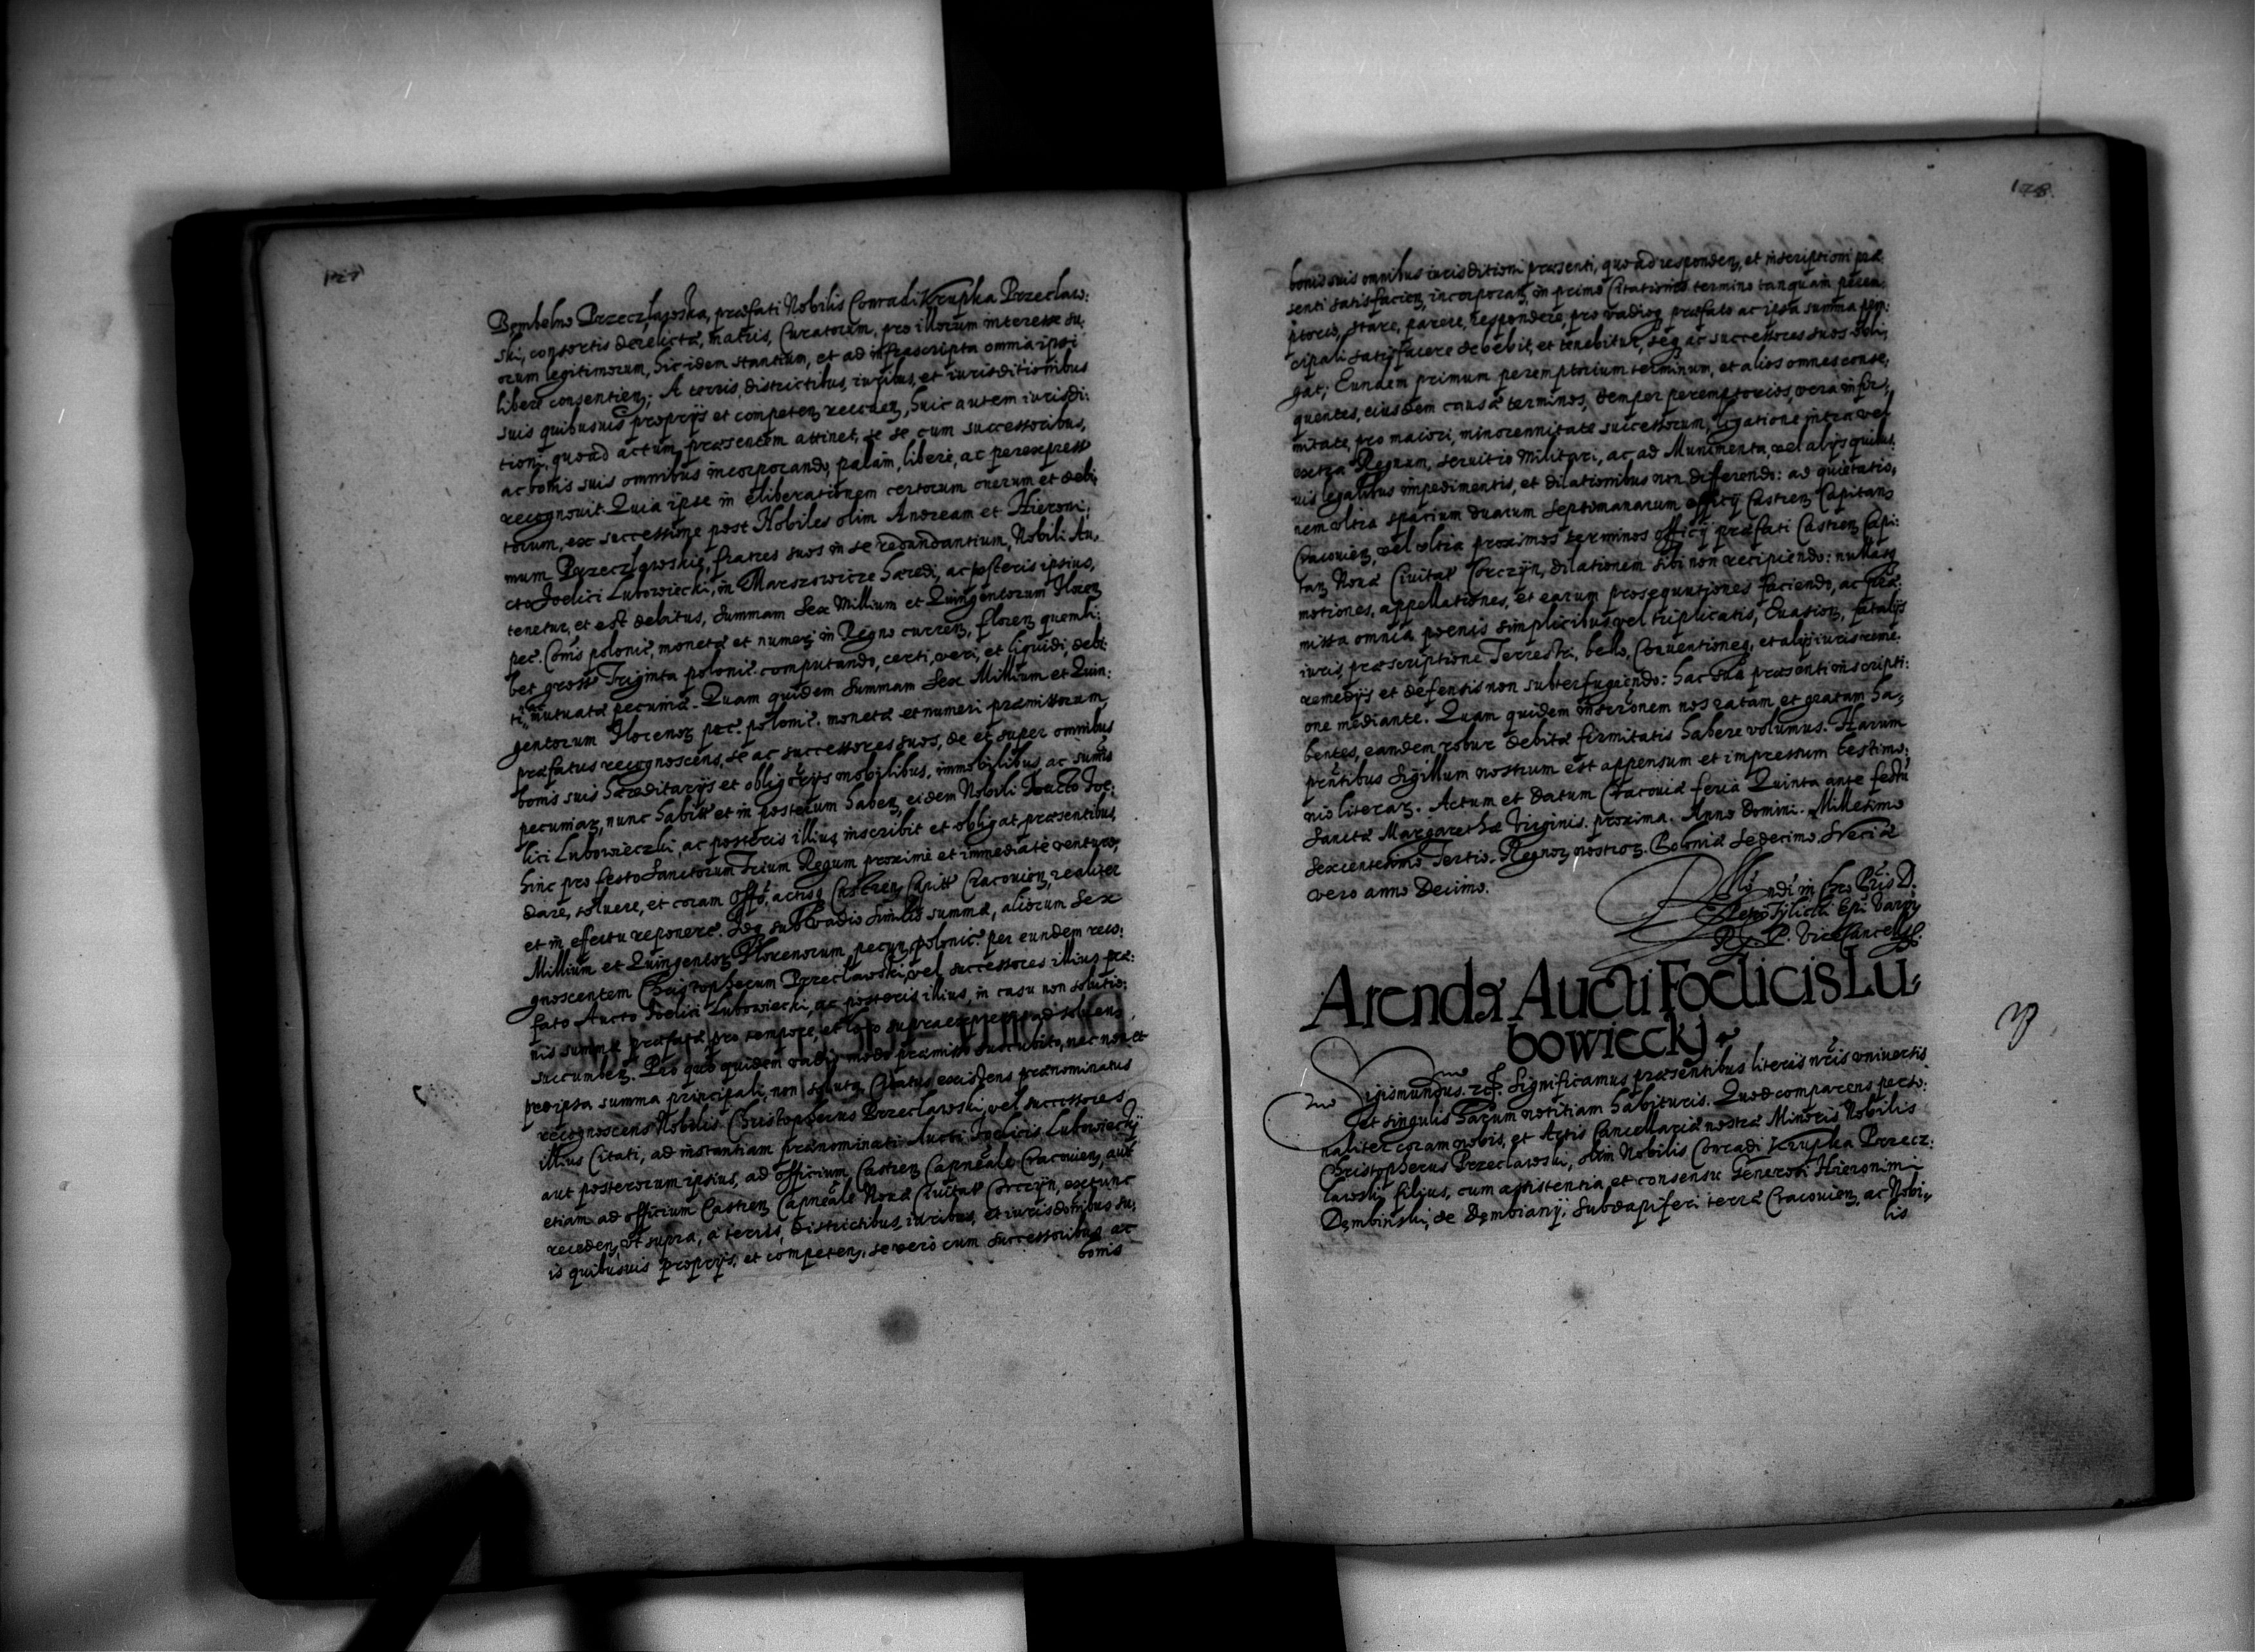 127
Bembelno Przeczlawska, præfati Nobilis Conradi Krupka Przeclaw:
ski, consortis derelictæ, matris, Curatorum, pro illorum interesse su:
orum legitimorum, hic idem stantium, et ad infrascripta omnia ipsi
libere consentien; A terris, districtibus, iuribus, et iurisditionibus
suis quibusuis proprijs et competen receden, huic autem iurisdi:
tioni, quoad actum præsentem attinet, se se cum successoribus,
ac bonis suis omnibus incorporando, palam, libere, ac per expressum
recognouit. Quia ipse in eliberationem certorum onerum et debi,
torum, ex successione post Nobiles olim Andream et Hieroni:
mum Przeczlawskie, fratres suos in se redundantium, Nobili Au,
cto Foelici Lubowiecki, in Marszowicze hæredi, ac posteris ipsius,
tenetur, et est debitus, summam Sex Millium et Quingentorum floren
pec. Cois polonic, monetæ et numeri in Regno curren, floren quemli:
bet gross Triginta polonic. computando, certi, veri, et liquidi, debi:
ti, ac mutuatæ pecuniæ. Quam quidem summam Sex Millium et Quin:
gentorum florenor pec. polonic. monetæ et numeri præmissorum,
præfatus recognoscens, se ac successores suos, de et super omnibus
bonis suis hæreditarijs et obligorijs mobilibus, immobilibus, ac sumis
pecuniar, nunc habitt et in posterum haben, eidem Nobili Aucto Foe:
lici Lubowieczki, ac posteris illius, inscribit et obligat præsentibus
hinc pro festo Sanctorum Trium Regum proxime et immediate venturo,
dare, soluere, et coram Offo, actisq Castren Capitt Cracouien, realiter
et in efectu reponere. Idq sub vadio similis summæ, aliorum Sex
Millium et Quingentor Florenorum, pecun polonic. per eundem reco:
gnoscentem Christopherum Przeclawski, vel successores illius præ:
fato Aucto Foelici Lubowiecki, ac posteris illius, in casu non solutio:
nis summæ præfatæ pro tempore, et loco supraexpressis ad soluen,
succumben. Pro quo quidem vadio modo præmisso succubito, nec non et
pro ipsa summa principali, non soluta, Citatus existens prænominatus
recognoscens Nobilis Christopherus Przeclawski, vel successores
illius Citati, ad instantiam prænominati Aucti Foelicis Lubowieckÿ
aut posterorum ipsius, ad officium Castren Capneale Cracouien, aut
etiam ad officium Castren Capneale Nouæ Ciuitat Corczÿn, ex tunc
receden, ut supra, a terris, districtibus, iuribus, et iurisdonibus su,
is quibusuis proprijs, et competen, se vero cum successoribus ac
bonis
128.
bonis suis omnibus iurisditioni præsenti, quo ad responden, et inscriptioni præ:
senti satisfacien, incorporan, in primo Citationis termino tanquam perem:
ptorio, stare, parere, respondere, pro vadioq præfato ac ipsa summa prin:
cipali satisfacere debebit, et tenebitur, seq ac successores suos obli,
gat; Eundem primum peremptorium terminum, et alios omnes conse,
quentes, eiusdem causæ terminos, semper peremptorios, vera infir,
mitate, pro maiori, minorennitate successorum, legatione intra vel
extra Regnum, seruitio militari, ac ad Munimenta, vel alijs quibus,
uis legalibus impedimentis, et dilationibus non differendo: ad quietatio,
nem vltra spatium duarum septimanarum officij Castren Capitan
Cracouien, vel vltra proximos terminos officij præfati Castren Capi:
tan Nouæ Ciuitat Corczÿn, dilationem sibi non recipiendo: nullasq
motiones, appellationes, et earum prosequutiones faciendo, ac præ:
missa omnia poenis simplicibus vel triplicatis, Euasion, fatalÿs
iuris præscriptione Terrestri, bello, Conuentioneq, et alijs iuris
remedÿs et defensis non subterfugiendo: hac sua præsenti inscripti:
one mediante. Quam quidem inscrionem nos ratam, et gratam ha,
bentes, eandem robur debitæ firmitatis habere volumus. Harum
prntibus Sigillum nostrum est appensum et impressum testimo:
nio literar. Actum et datum Cracouiæ feria Quinta ante festu
Sanctæ Margarethæ Virginis. proxima. Anno Domini. Millesimo
Sexcentesimo Tertio. Regnor nostror. Poloniæ Sedecimo Sveciæ
vero anno Decimo.
Rndi in Chro Pris D.
Petri Tÿlicki Epi Varm
R. P. ViceCancell.
Arenda Aucti Foelicis Lu,
bowieckj
Sigismundus. Significamus præsentibus literis nris vniuersis
et singulis harum notitiam habituris. Quod comparens perso:
naliter coram nobis, et Actis Cancellariæ nostræ Minoris Nobilis
Christopherus Przeclawski, olim Nobilis Conradi Krupka Przecz:
lawski filius, cum assistentia et consensu Generosi Hieronimi
Dembinski, de Dembianÿ, Subdapiferi terræ Cracouien, ac Nobi,
lis